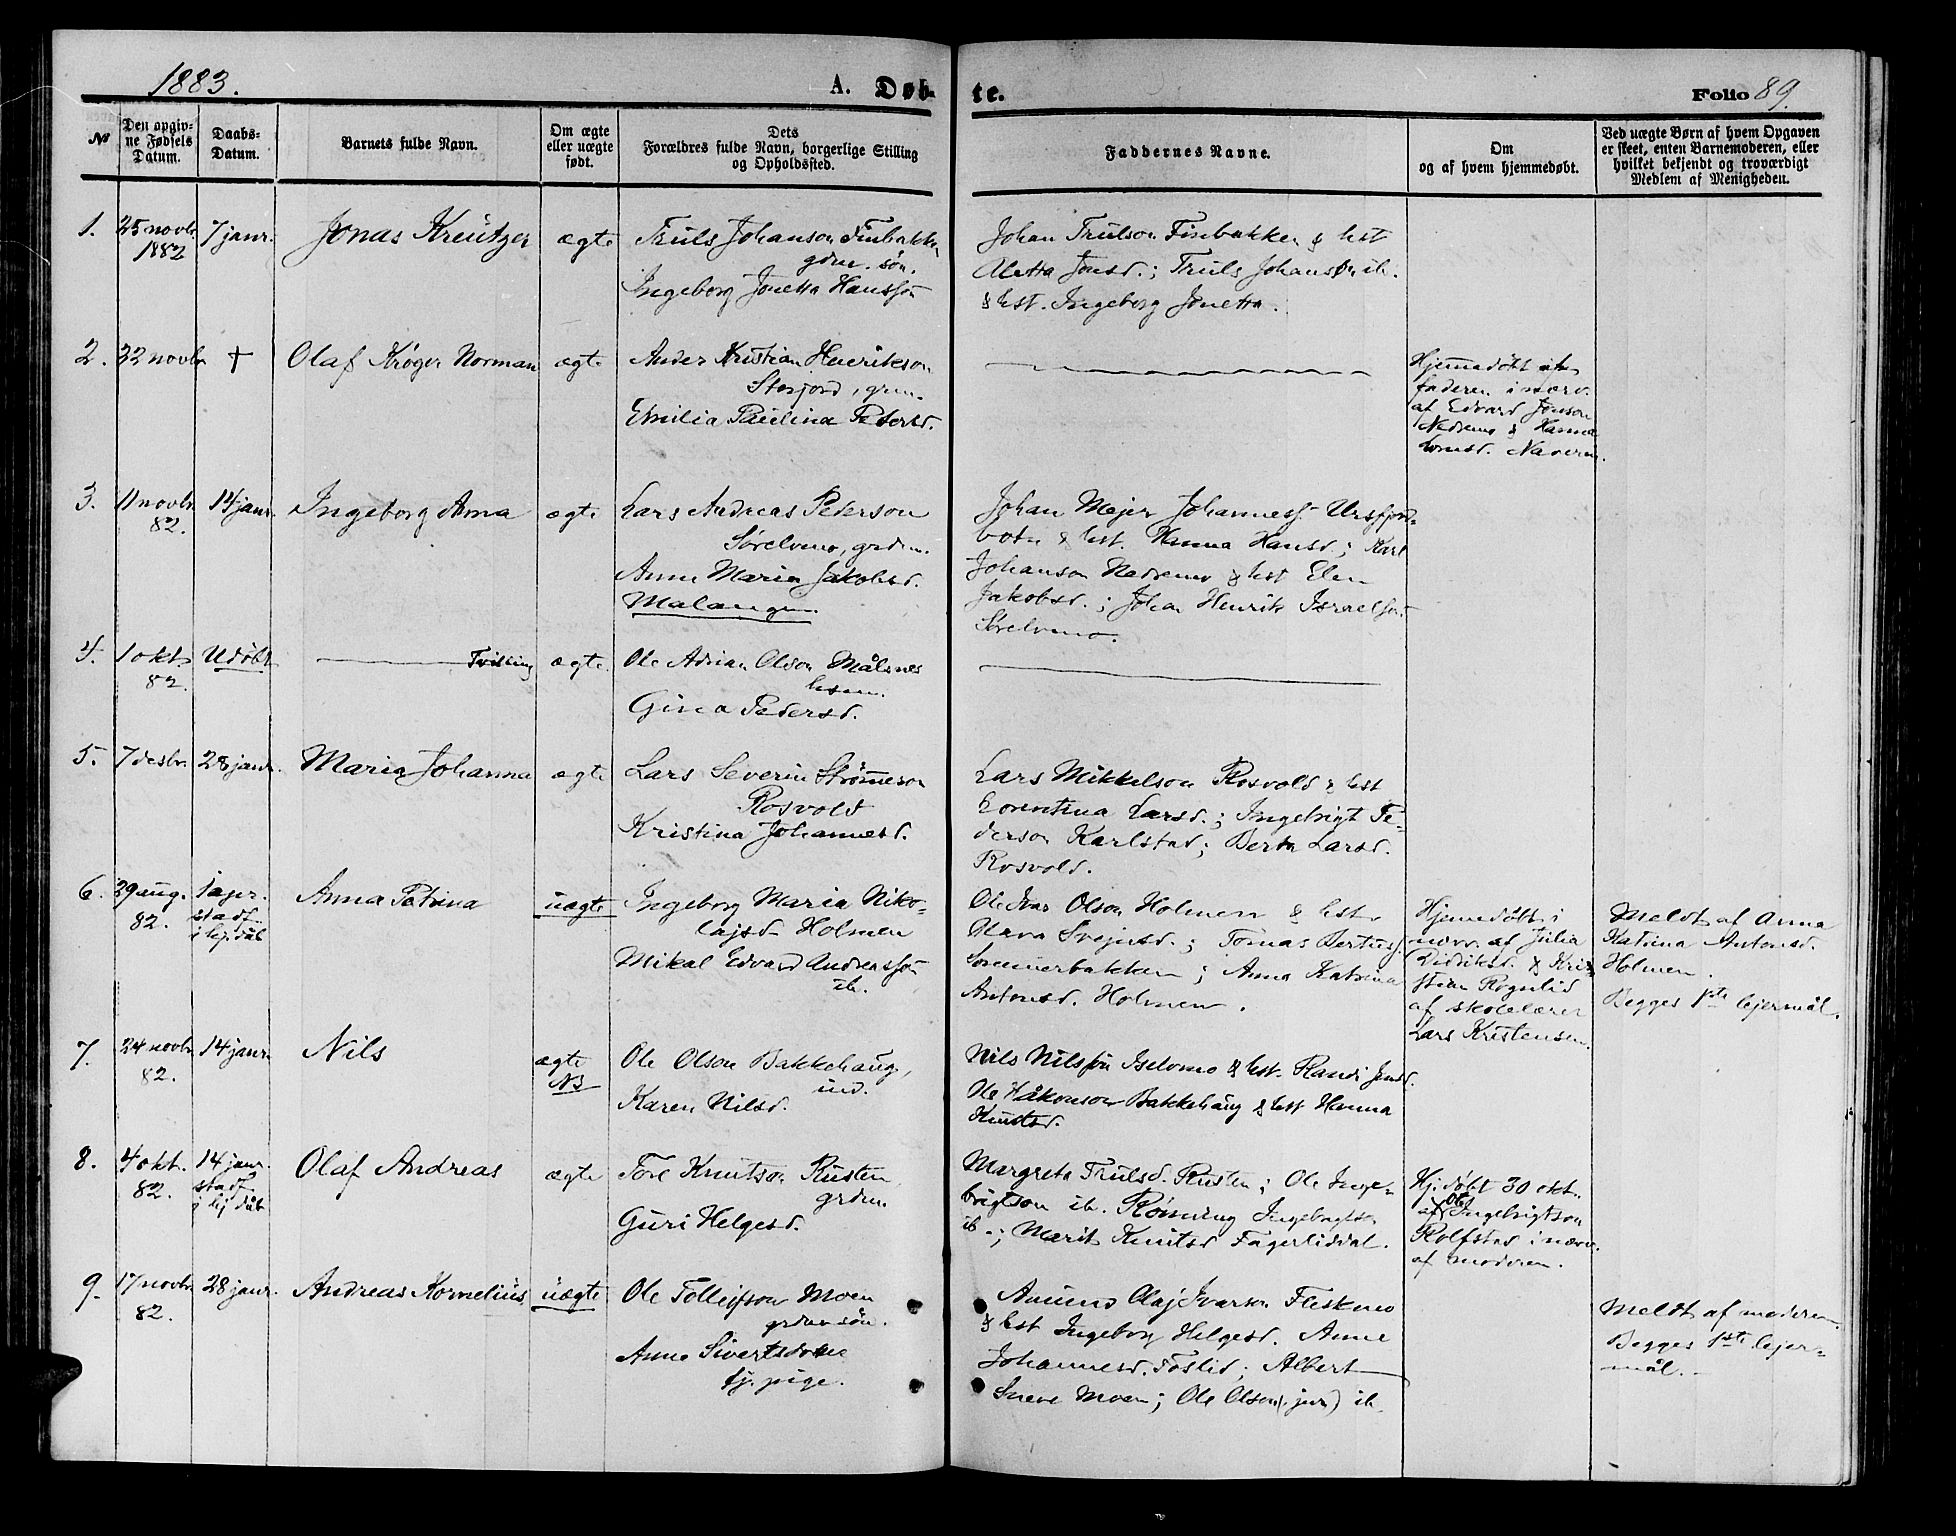 1883.
A. Døb-
te.
Folio 89.
№
Den opgiv-
ne Fødsels
Datum.
Daabs-
Datum.
Barnets fulde Navn.
Om ægte
eller uægte
født.
Dets
Forældres fulde Navn, borgerlige Stilling
og Opholdssted.
Faddernes Navne.
Om
og af hvem hjemmedøbt.
Ved uægte Børn af hvem Opgaven
er skeet, enten Barnemoderen, eller
hvilket bekjendt og troværdigt
Medlem af Menigheden.
1.
25 novbr.
1882
7 janr.
Jonas Kreutzer
ægte
Truls Johanson Finbakken
gdm. søn.
Ingeborg Jonetta Hansson
Johan Trulson Finbakken & hst
Aletta Jonsd.; Truls Johanson ib.
& hst. Ingeborg Jonetta.
2.
22 novbr
†
Olaf Krøger Norman
ægte
Ander Kristian Henrikson
Storfjord, grm.
Emilia Paulina Petersd.
Hjemmedøbt
faderen i nærv.
af Edvard Jonson
Nedremo & Hanna
3.
11 novbr
82.
14 janr.
Ingeborg Anna
ægte
Lars Andreas Pederson
Sørelvmo, grdm.
Anne Maria Jakobsd.
Malangen.
Johan Mejer Johanness. Ursfjord-
botn & hst. Hanna Hansd.; Karl
Johanson Nedremo & hst Elen
Jakobsd.; Johan Henrik Israelson
Sørelvmo.
4.
1 okt.
82.
Udøbt
Tvilling
ægte.
Ole Adrian Olson Målsnes
Gina Pedersd.
5.
7 desbr.
28 janr.
Maria Johanna
ægte
Lars Severin Strømeson
Rosvold
Kristina Johannesd.
Lars Mikkelson Rosvold & hst
Lorentina Larsd.; Ingebrigt Pe-
derson Karlstad; Berta Larsd.
Rosvold.
6.
29 aug.
82.
1 apr.
stadf.
i hj.dåb
Anna Petrina
uægte
Ingeborg Maria Niko-
lajsd. Holmen
Mikal Edvard Andreasson
ib.
Ole Ivar Olson Holmen & hst.
Mara Svejnsd.; Tomas Bertus.
Sommerbakken; Anna Katrina
Antonsd. Holmen.
Hjemmedøbt i
nærv. af Julia
Didriksd. & Kri-
stian Rognlid
af skolelærer
Lars Kristensen.
Meldt af Anna
Katrina Antonsd.
Holmen.
Begges 1ste lejermål.
7.
24 novbr
82.
14 janr.
Nils
ægte
NB
Ole Olson Bakkehaug,
ind.
Karen Nilsd.
Nils Nilsson Iselvmo & hst. Randi Jensd.
Ole Håkonson Bakkehaug & hst Hanna
Knutsd.
8.
4 okt.
82.
14 janr.
stadf.
i hj.dåb
Olaf Andreas
ægte
Tore Knutson Rusten,
grdm.
Guri Helgesd.
Margreta Trulsd. Rusten; Ole Inge-
brigtson ib. Rønning Ingebrigtson
ib.; Marit Knutsd Fagerliddal.
Hj.døbt 30 okt.
af Ole Ingebrigtson
Rolfstad i nærv.
af moderen.
9.
17 novbr
82.
28 janr.
Andreas Kornelius
uægte
Ole Tolleifson Moen
grdm søn.
Anne Sivertsd.
tj. pige.
Amund Olaj Ivarson Fleskmo
& hst Ingeborg Helgesd. Anne
Johannesd. Foslid; Albert
Sneve Moen; Ole Olson (jun) ib.
Meldt af moderen.
Begges 1ste lejer-
mål.